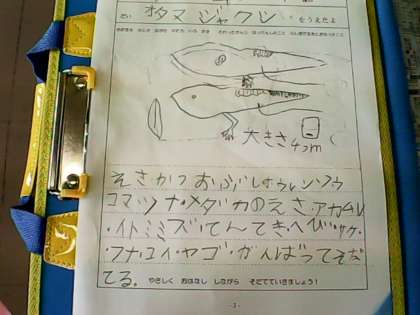 だい オタマジャクシ をうえたよ
大きさ 4cm
えさかつおぶしほうれンソウ
コマツナ・メダカのえさ・アカムシ
・イトミミズ・てんてき・へび・サケ・
・フナ・コイ・ヤゴ・がんばってそだ
てる。
やさしく おはなし しながら そだてていきましょう!
-3-